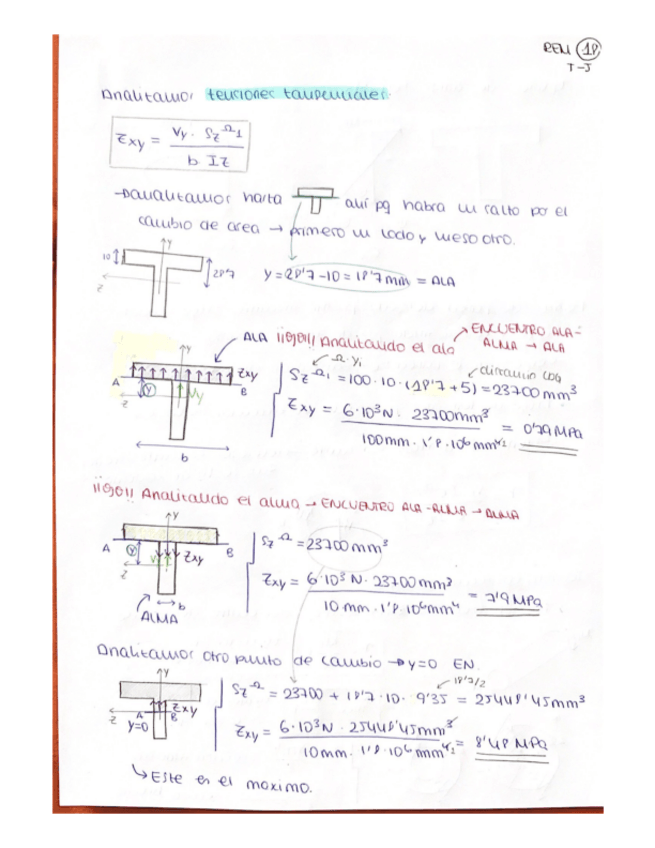 REM 18
T-J
Analizamos tensiones tangenciales.
τxy = Vy · Sz^Ω1 / b Iz
→ analizamos hasta aquí pq habrá un salto por el
cambio de area → primero un lado y luego otro.
y
10
28'7
z
y = 28'7 - 10 = 18'7 mm = ALA
ALA ¡¡ojo!! Analizando el ala → ENCUENTRO ALA-
ALMA → ALA
Ω·y1
distancia CDG
Sz^Ω1 = 100 · 10 · (18'7 + 5) = 23700 mm³
τxy = 6·10³N · 23700mm³ / 100mm · 1'8·10⁶mm⁴ = 0'79 MPa
y
τxy
A
Y
Vy
B
z
b
¡¡ojo!! Analizando el alma → ENCUENTRO ALA-ALMA → ALMA
Sz^Ω = 23700 mm³
τxy = 6·10³ N · 23700 mm³ / 10 mm · 1'8·10⁶mm⁴ = 7'9 MPa
y
A
Y
B
τxy
z
b
ALMA
Analizamos otro punto de cambio → y=0 EN.
18'7/2
Sz^Ω = 23700 + 18'7 · 10 · 9'35 = 25448'45mm³
τxy = 6·10³N · 25448'45mm³ / 10mm · 1'8·10⁶ mm⁴ = 8'48 MPa
y
τxy
z
A
B
y=0
↳ Este es el maximo.